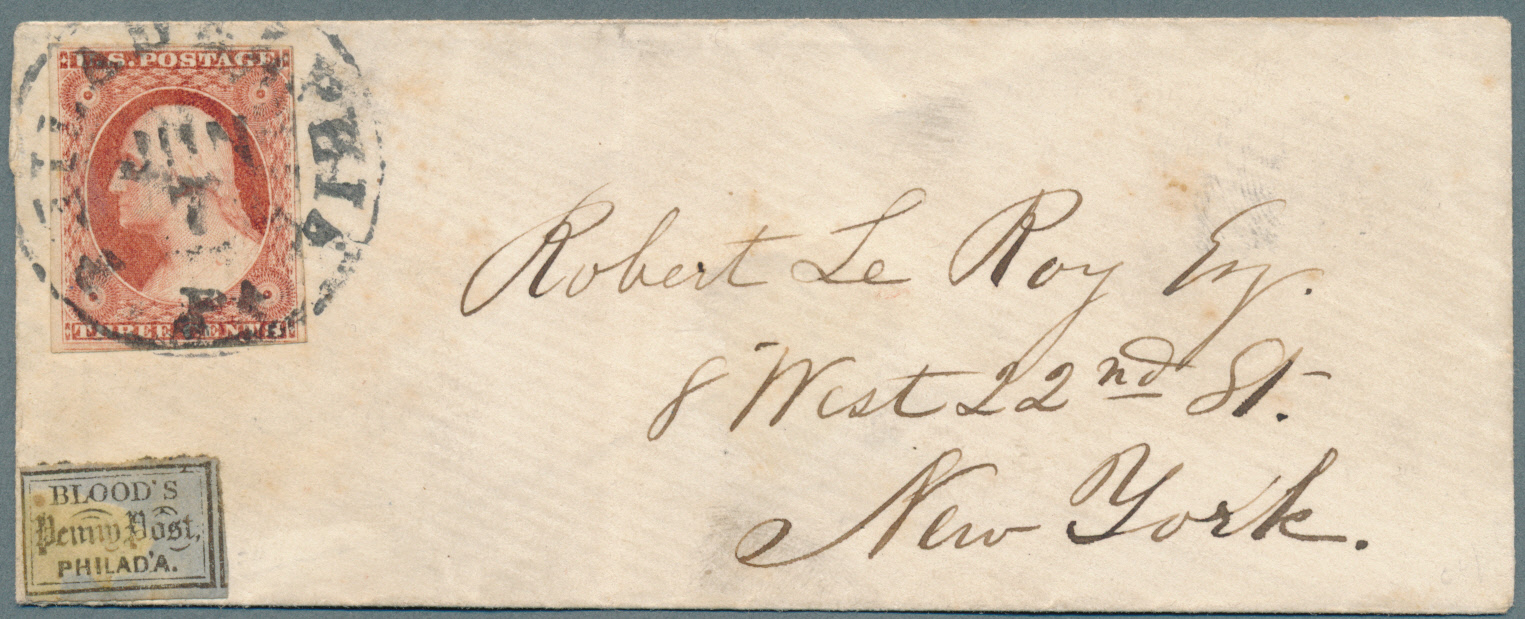 U.S. POSTAGE
THREE CENTS
PHILADELPHIA
JUN
7
Pa
Robert Le Roy Esq.
8 West 22nd St.
New York.
BLOOD'S
Penny Post,
PHILAD'A.